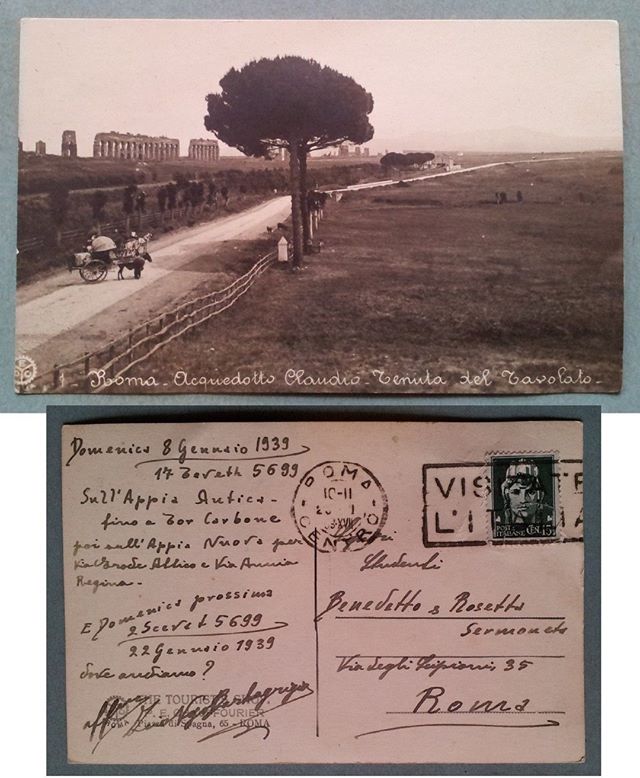 1 - Roma - Acquedotto Claudio - Tenuta del Tavolato -
Domenica 8 Gennaio 1939
17 Teveth 5699
Sull'Appia Antica -
fino a Tor Carbone
poi sull'Appia Nuova per
via Erode Attico e Via Annia
Regina -
E Domenica prossima
2 Scevet 5699
22 Gennaio 1939
dove andiamo?
THE TOURIST'S SHOP
FOURIER
Piazza di Spagna, 65 - ROMA
ROMA
10-11
XVII
CENTRO
VISITATE
L'ITALIA
POSTE ITALIANE
CENT. 15
Cari
Studenti
Benedetto e Rosetta
Sermoneta
Via degli Scipioni, 35
Roma